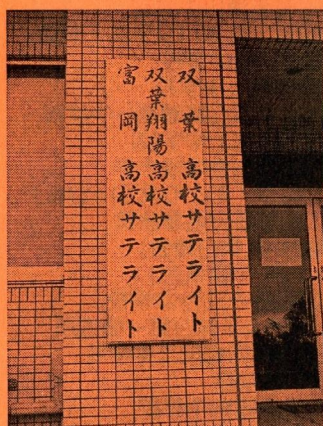 双葉高校サテライト
双葉翔陽高校サテライト
富岡高校サテライト